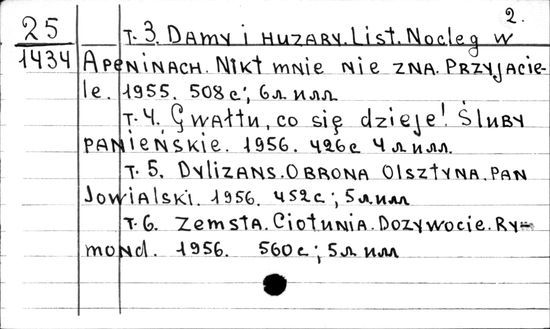 2.
25 т. 3. Damy i huzary. List. Nocleg w
1434 Apeninach. Nikt mnie nie zna. Przyjacie-
le. 1955. 508 с; 6 л. илл.
т. 4. Gwałtu, co się dzieje! Śluby
panieńskie. 1956. 426 с 4 л. илл.
т. 5. Dylizans. Obrona Olsztyna. Pan
Jowialski. 1956. 452 с; 5 л илл
т. 6. Zemsta. Ciotunia. Dozywocie. Ry-
mond. 1956. 560 с; 5 л илл